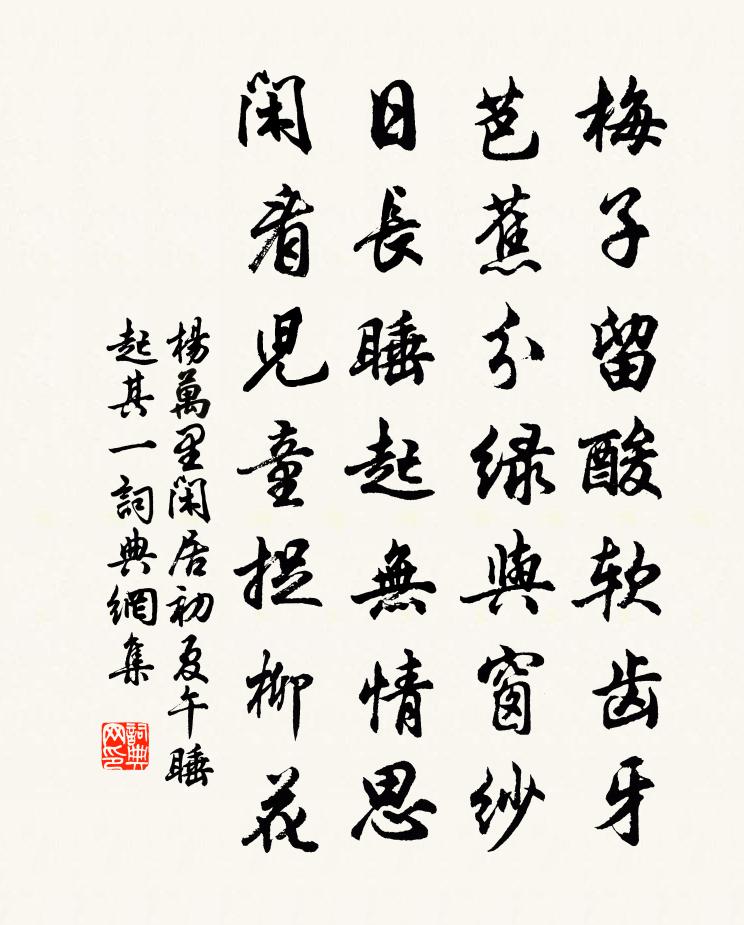 梅子留酸软齿牙
芭蕉分绿與窗纱
日長睡起無情思
閑看兒童捉柳花
楊萬里閑居初夏午睡
起其一詞典網集
詞典
网印